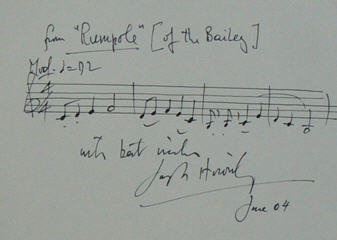 from "Rumpole" [of the Bailey]
Mod. ♩=92
4
4
with best wishes
Joseph Horovitz
June 04